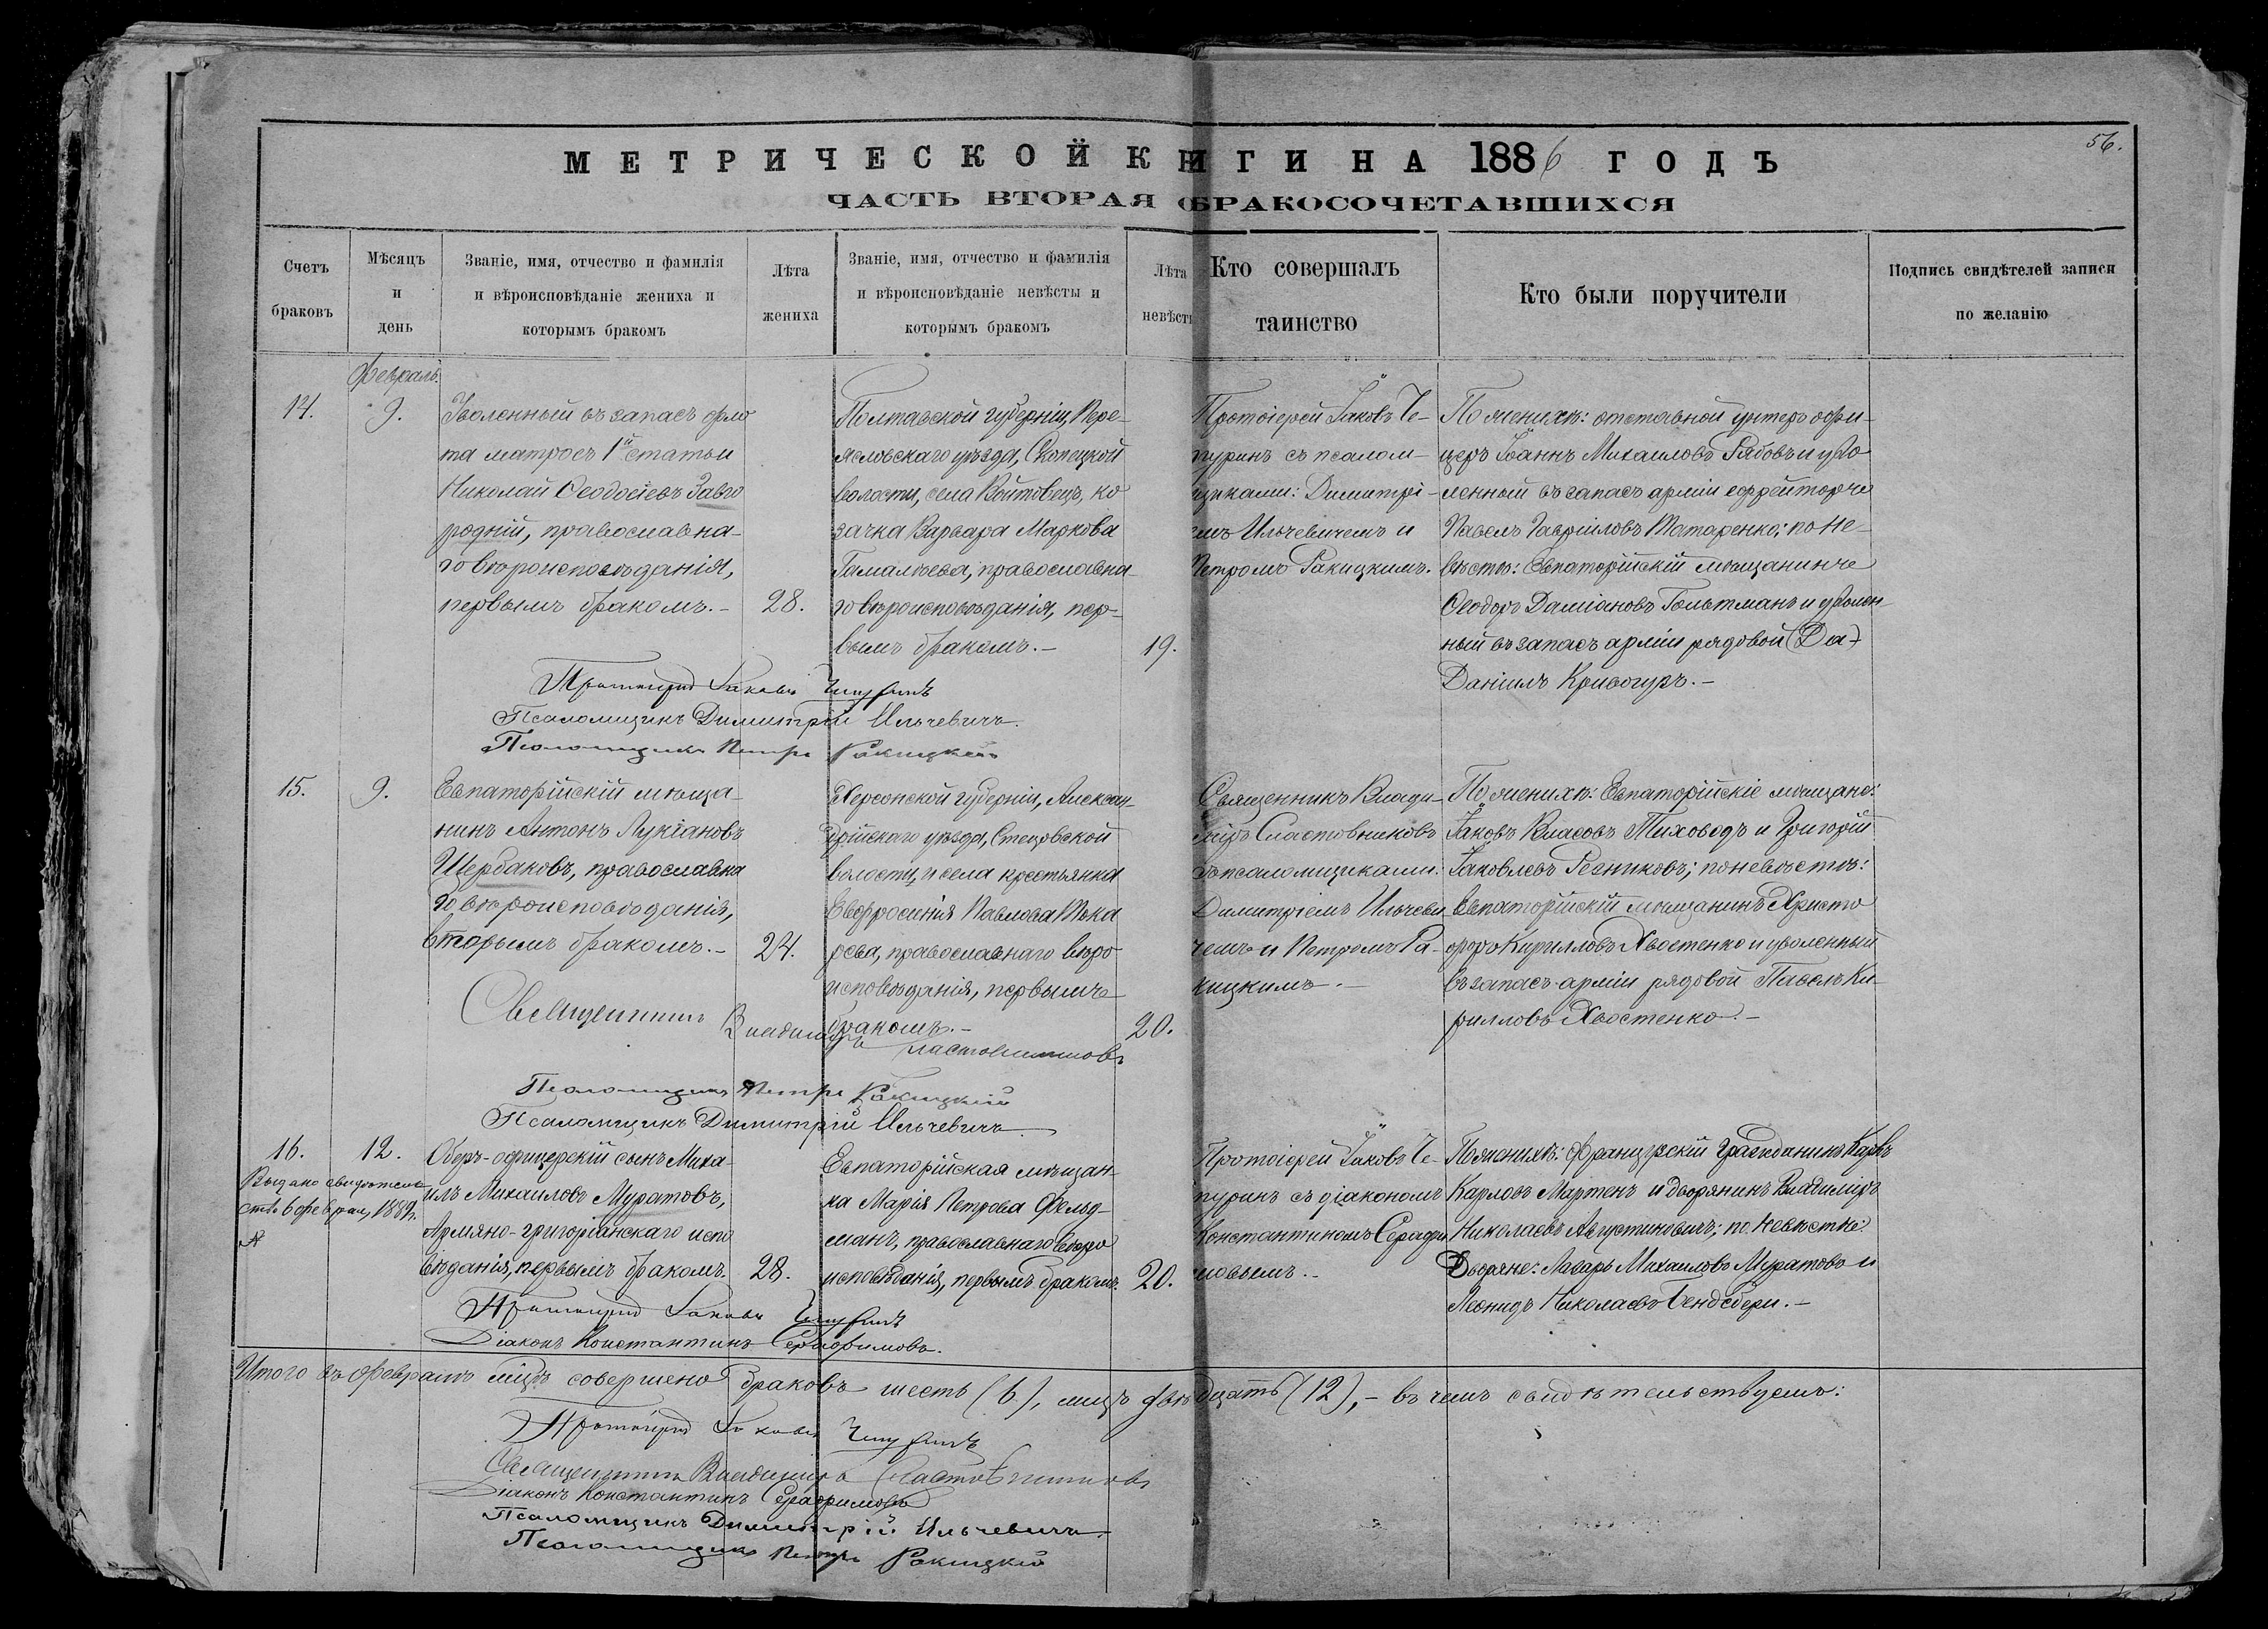 56.
МЕТРИЧЕСКОЙ КНИГИ НА 1886 ГОДЪ
ЧАСТЬ ВТОРАЯ О БРАКОСОЧЕТАВШИХСЯ
Счетъ
браковъ
Мѣсяцъ
и
день
Званіе, имя, отчество и фамилія
и вѣроисповѣданіе жениха и
которымъ бракомъ
Лѣта
жениха
Званіе, имя, отчество и фамилія
и вѣроисповѣданіе невѣсты и
которымъ бракомъ
Лѣта
невѣсты
Кто совершалъ
таинство
Кто были поручители
Подпись свидѣтелей записи
по желанію
Февраль.
14.
9.
Уволенный въ запасъ фло
та матросъ 1й статьи
Николай Ѳеодосіевъ Заво
родній, православна-
го вѣроисповѣданія,
первымъ бракомъ.-
28.
Полтавской губерніи, Пере-
яславскаго уѣзда,
волости, села Войтовецъ, ко
зачка Варвара Маркова
Гамалѣева, православна
го вѣроисповѣданія, пер-
вымъ бракомъ.-
19.
Протоіерей Іаковъ Че-
пуринъ съ псалом-
щиками: Димитрі-
емъ Ильчевичемъ и
Петромъ Ракицкимъ.
По женихѣ: отставной унтеръ офи-
церъ Іоаннъ Михаиловъ Рябовъ и уво
ленный въ запасъ арміи ефрейторъ
Павелъ Гавріиловъ Татаренко; по не-
вѣстѣ: Евпаторійскій мѣщанинъ
Ѳеодоръ Даміановъ Гольтманъ и уволен
ный въ запасъ арміи рядовой (Да)
Даніилъ Кривогузъ.-
Протоіерей Іаковъ Чепуринъ
Псаломщикъ Димитрій Ильчевичъ.
Псаломщикъ Петръ Ракицкій
15.
9.
Евпаторійскій мѣща-
нинъ Антонъ Лукіановъ
Щербаковъ, православна
го вѣроисповѣданія,
вторымъ бракомъ.-
24.
Херсонской губерніи, Алексан-
дрійскаго уѣзда, Стецовской
волости, и села крестьянка
Евфросинія Павлова Тока
рева, православнаго вѣро
исповѣданія, первымъ
бракомъ.-
20.
Священникъ Влади-
міръ Сластовниковъ
съ псаломщиками:
Димитріемъ Ильчеви
чемъ и Петромъ Ра-
кицкимъ.-
По женихѣ: Евпаторійскіе мѣщане:
Іаковъ Власовъ Тиховодъ и Григорій
Іаковлевъ Резниковъ; по невѣстѣ:
Евпаторійскій мѣщанинъ Христо
форъ Кирилловъ Хвостенко и уволенный
въ запасъ арміи рядовой Павелъ Ки-
рилловъ Хвостенко.-
Священникъ Владиміръ Сластовниковъ
Псаломщикъ Петръ Ракицкій
Псаломщикъ Димитрій Ильчевичъ
16.
12.
Выдано свидѣтель
ство 6 февраля,
№
Оберъ-офицерскій сынъ Миха-
илъ Михаиловъ Муратовъ,
Армяно-григоріанскаго испо
вѣданія, первымъ бракомъ.
28.
Евпаторійская мѣщан-
ка Марія Петрова Фельд-
манъ, православнаго вѣро
исповѣданія, первымъ бракомъ.
20.
Протоіерей Іаковъ Че-
пуринъ съ діакономъ
Константиномъ Серафи
мовымъ.-
По женихѣ: Французскій гражданинъ Карлъ
Карловъ Мартенъ и дворянинъ Владиміръ
Николаевъ Августиновичъ; по невѣстѣ:
Дворяне: Лазарь Михаиловъ Муратовъ и
Леонидъ Николаевъ Бендебери.-
Протоіерей Іаковъ Чепуринъ
Діаконъ Константинъ Серафимовъ.
Итого въ Февралѣ мцѣ совершено браковъ шесть (6), лицъ двѣнадцать (12),- въ чемъ свидѣтельствуемъ:
Протоіерей Іаковъ Чепуринъ
Священникъ Владиміръ Сластовниковъ
Діаконъ Константинъ Серафимовъ
Псаломщикъ Димитрій Ильчевичъ.
Псаломщикъ Петръ Ракицкій